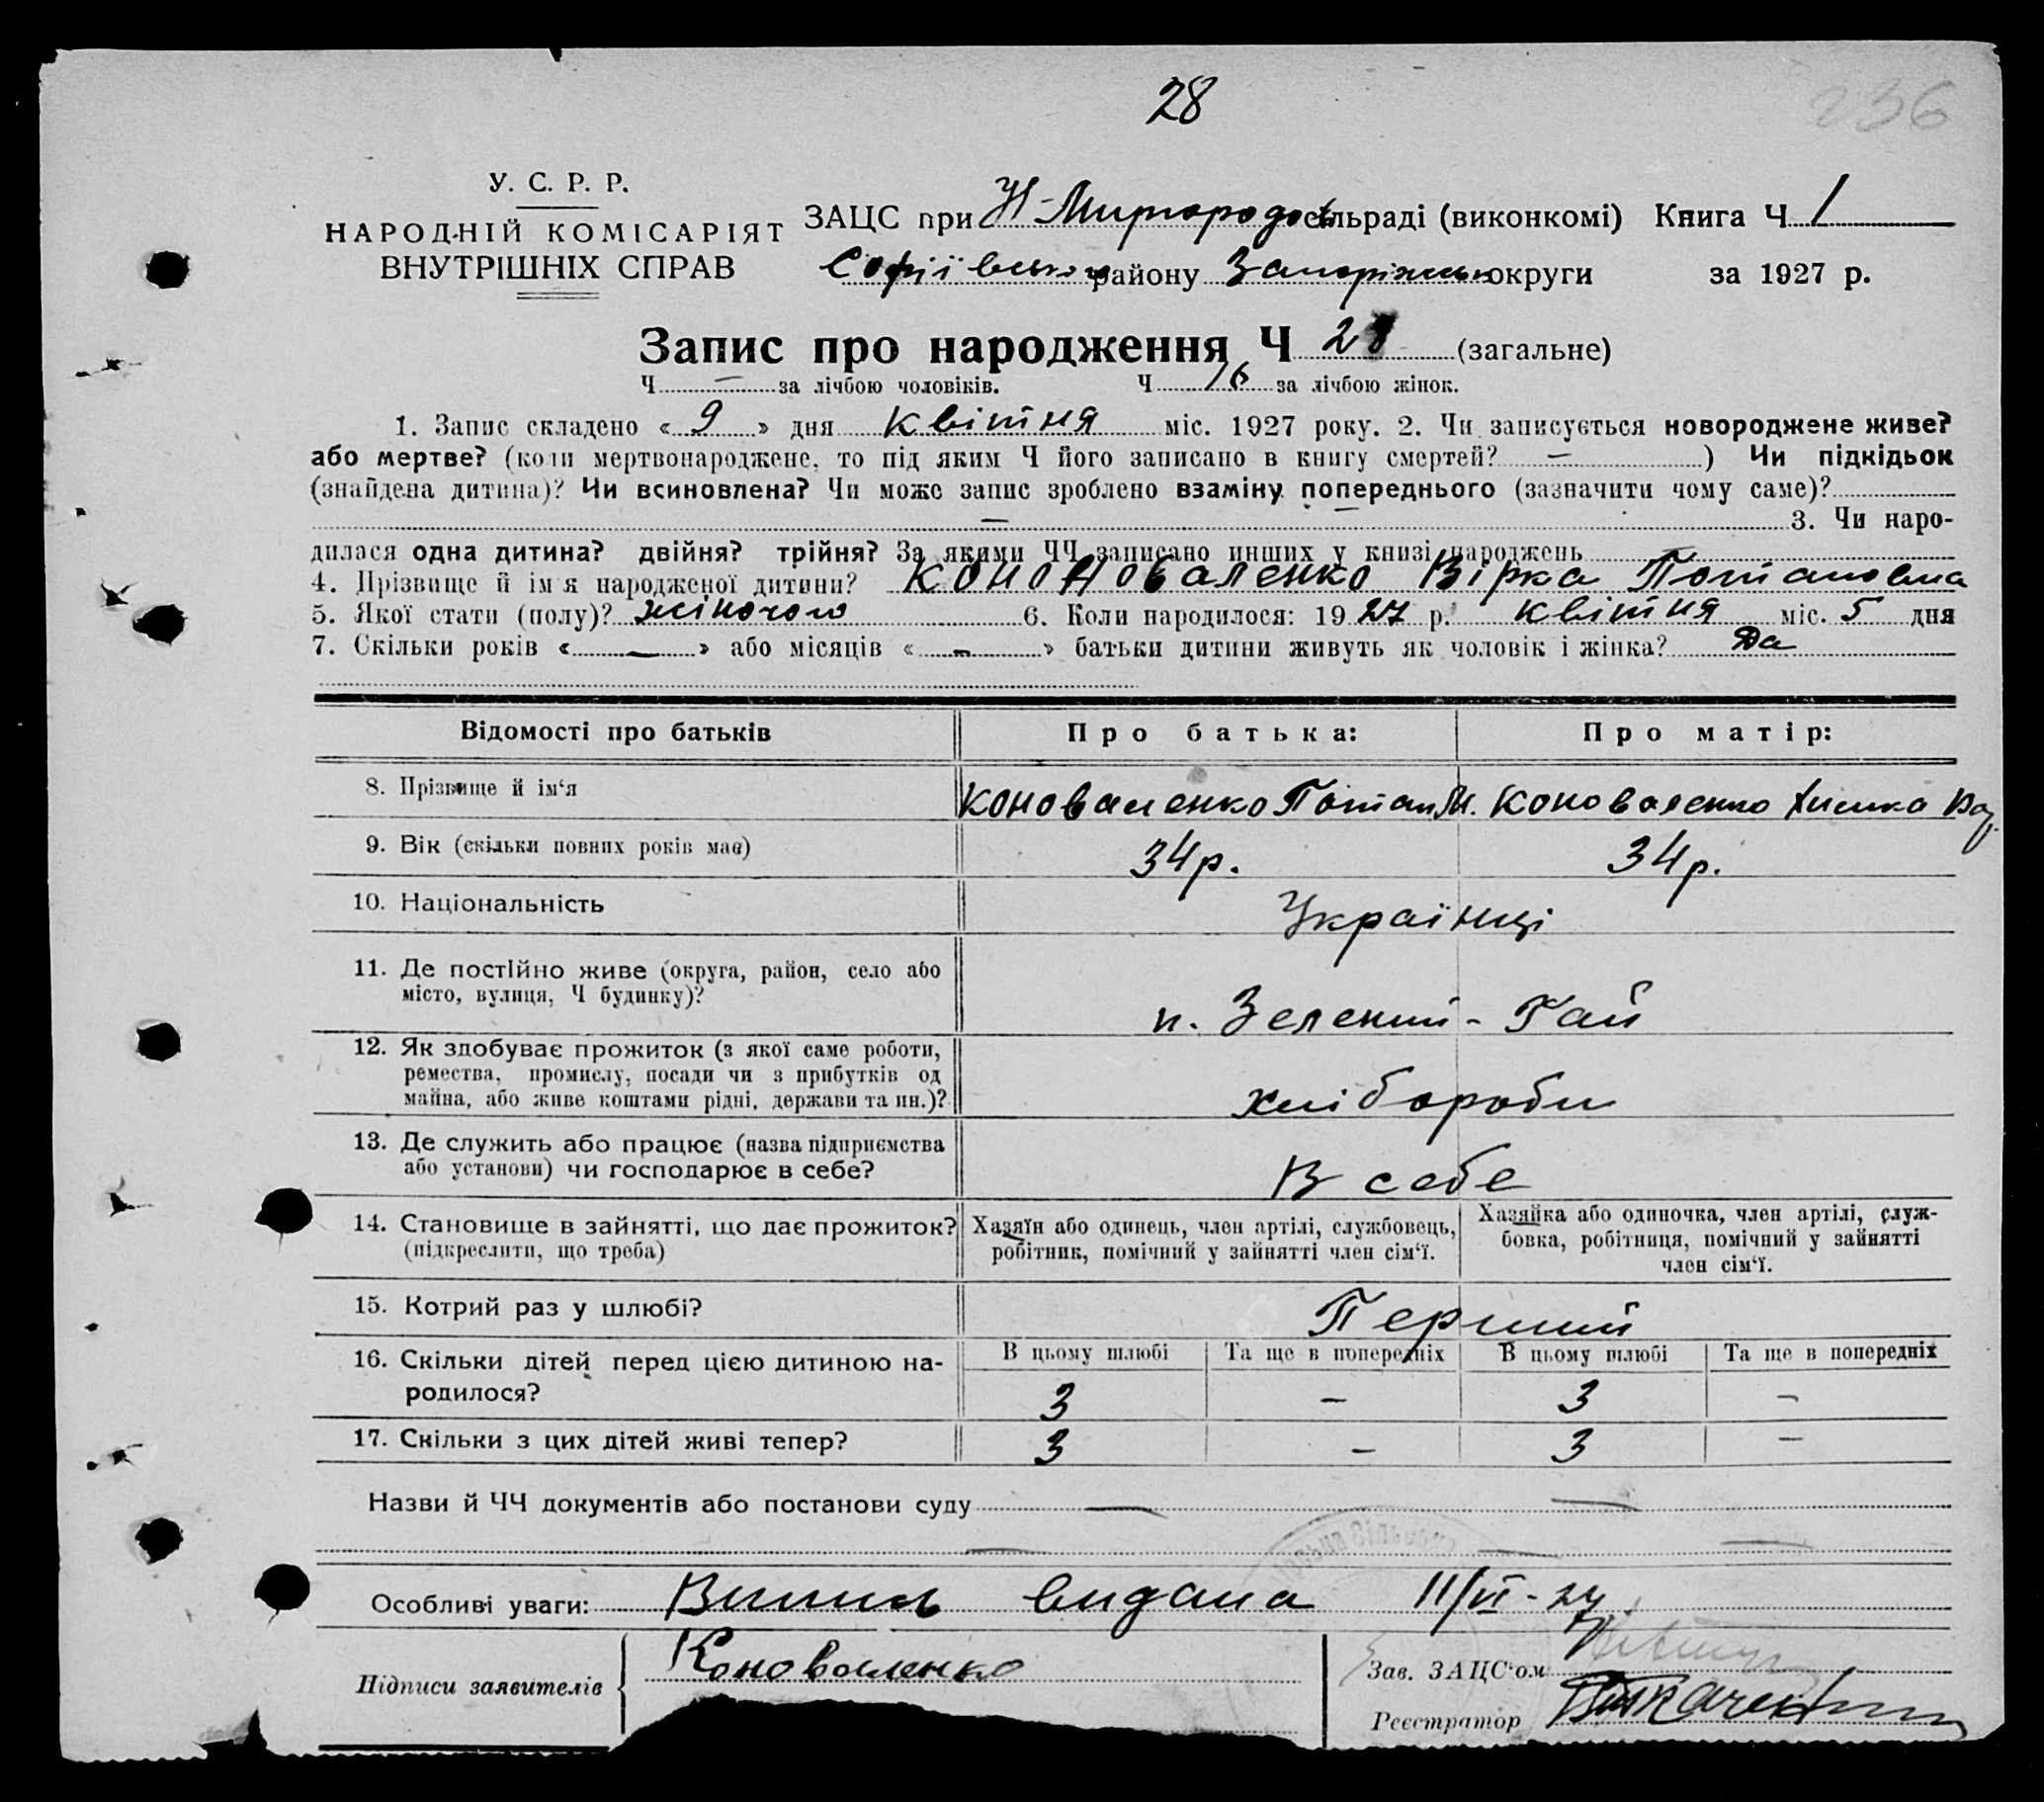 28
236
У. С. Р. Р.
НАРОДНІЙ КОМІСАРІЯТ
ВНУТРІШНІХ СПРАВ
ЗАЦС при Н-Миргородсь сільраді (виконкомі) Книга Ч 1
Софіївського району Запоріжськ округи за 1927 р.
Запис про народження Ч 28 (загальне)
Ч — за лічбою чоловіків. Ч 16 за лічбою жінок.
1. Запис складено « 9 » дня квітня міс. 1927 року. 2. Чи записується новороджене живе?
або мертве? (коли мертвонароджене, то під яким Ч його записано в книгу смертей? — ) Чи підкідьок
(знайдена дитина)? Чи всиновлена? Чи може запис зроблено взаміну попереднього (зазначити чому саме)?
— 3. Чи наро-
дилася одна дитина? двійня? трійня? За якими ЧЧ записано инших у книзі народжень
4. Прізвище й ім'я народженої дитини? Коноваленко Вірка Потаповна
5. Якої стати (полу)? жіночого 6. Коли народилося: 1927 р. квітня міс. 5 дня
7. Скільки років « — » або місяців « — » батьки дитини живуть як чоловік і жінка? Да
Відомості про батьків Про батька: Про матір:
8. Прізвище й ім'я Коноваленко Потап М. Коноваленко
9. Вік (скільки повних років має) 34р. 34р.
10. Національність Українці
11. Де постійно живе (округа, район, село або
місто, вулиця, Ч будинку)? п. Зелений-Гай
12. Як здобуває прожиток (з якої саме роботи,
ремества, промислу, посади чи з прибутків од
майна, або живе коштами рідні, держави та ин.)? хлібороби
13. Де служить або працює (назва підприємства
або установи) чи господарює в себе? В себе
14. Становище в зайнятті, що дає прожиток?
(підкреслити, що треба)
Хазяїн або одинець, член артілі, службовець,
робітник, помічний у зайнятті член сім'ї.
Хазяйка або одиночка, член артілі, служ-
бовка, робітниця, помічний у зайнятті
член сім'ї.
15. Котрий раз у шлюбі? Перший
16. Скільки дітей перед цією дитиною на-
родилося?
В цьому шлюбі Та ще в попередніх В цьому шлюбі Та ще в попередніх
3 — 3 —
17. Скільки з цих дітей живі тепер? 3 — 3 —
Назви й ЧЧ документів або постанови суду — —
— — —
Особливі уваги: Випись видана 11/VI-27
Підписи заявителів Коноваленко
Зав. ЗАЦС'ом
Реєстратор